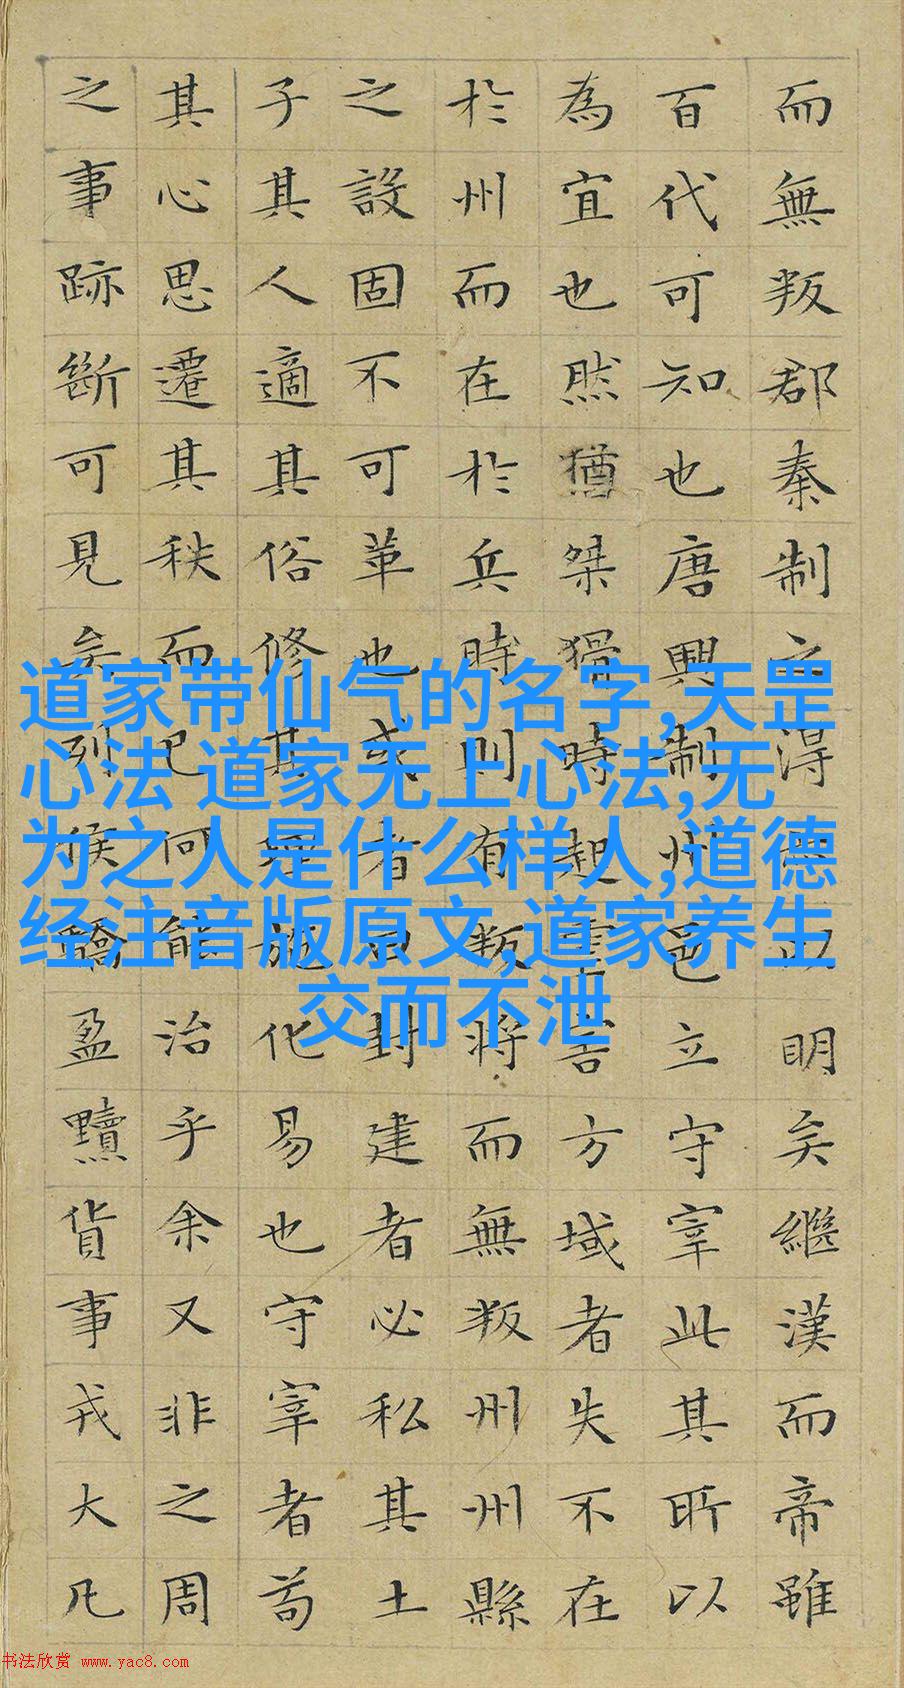 而無叛郡秦制之得亦以明矣繼漢而帝雖
百代可知也唐興制州邑立守宰此其所以
為宜也然猶桀猾時起虐害方域者失不在
於州而在於兵時則有叛將而無叛州州縣
之設固不可革也或者曰封建者必私其土
子其人適其俗修其理施化易也守宰者苟
其心思遷其秩而已何能治乎余又非之周
之事跡斷可見矣列侯驕盈黷貨事戎大凡
道家带仙气的名字,天罡
心法 道家无上心法,无
为之人是什么样人,道德
经注音版原文,道家养生
交而不泄
书法欣赏 www.yac8.com